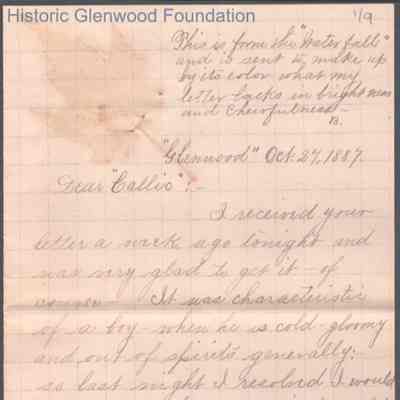 Historic Glenwood Foundation
1/9
This is from the "Water falls"
and is sent to make up
by its color what my
letter lacks in brightness
and cheerfulness-
B.
"Glenwood" Oct. 27, 1887.
Dear "Callie":-
I received your
letter a week ago tonight and
was very glad to get it - of
course - It was characteristic
of a boy - when he is cold - gloomy
and out of spirits generally;
so last night I resolved I would